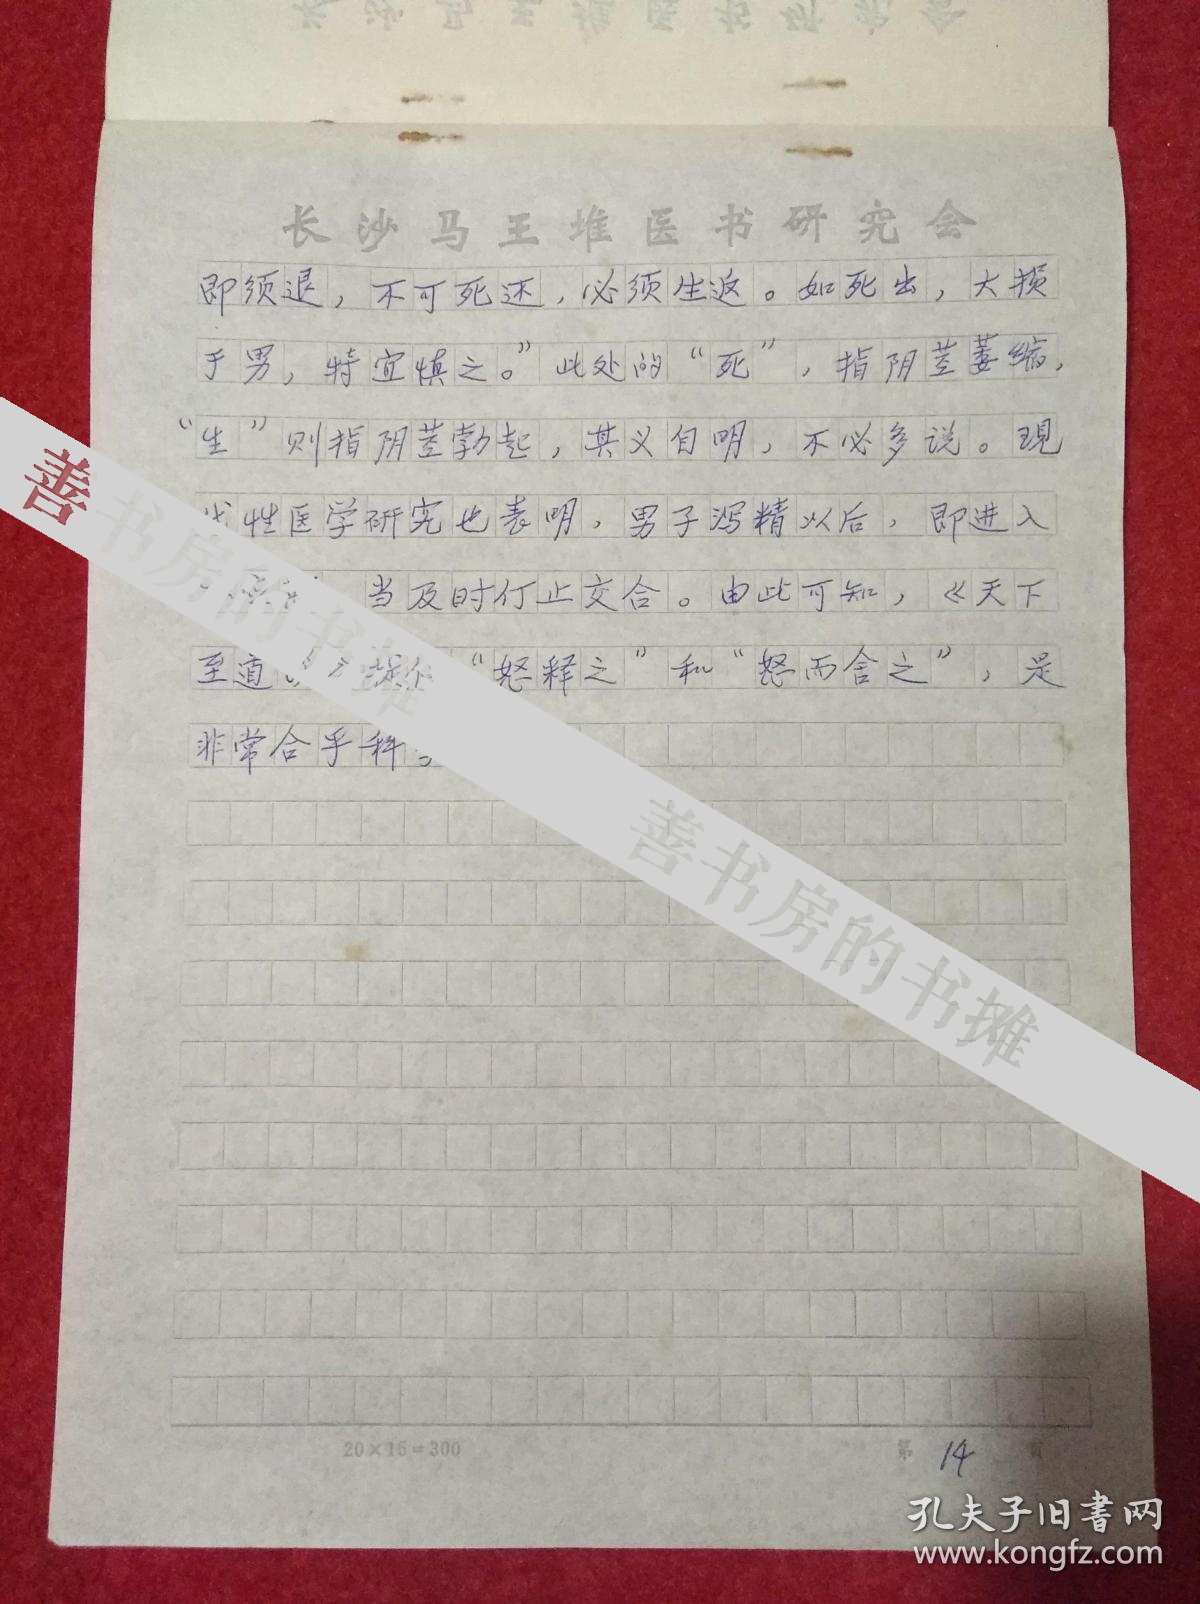 长沙马王堆医书研究会
即须退，不可死还，必须生返。如死出，大损
于男，特宜慎之。”此处的“死”，指阴茎萎缩，
“生”则指阴茎勃起，其义自明，不必多说。现
代性医学研究也表明，男子泻精以后，即进入
当及时停止交合。由此可知，《天下
至道 “怒释之”和“怒而舍之”，是
非常合乎科
20×15=300
第 14 页
善书房的书摊
善书房的书摊
孔夫子旧书网
www.kongfz.com